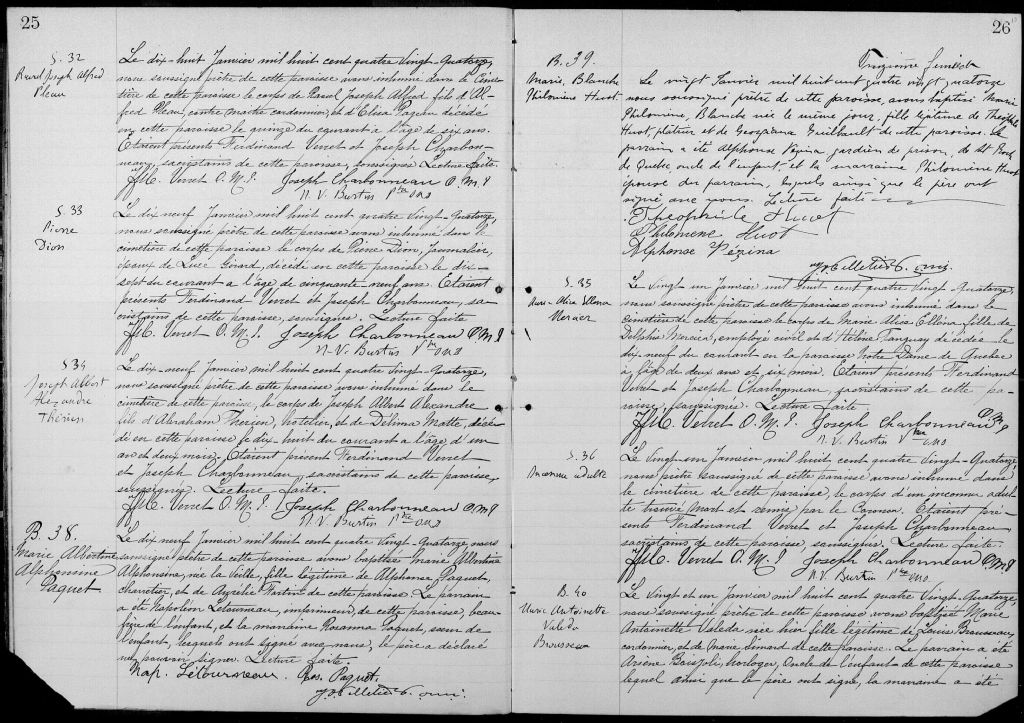 25
S. 32
Raoul Joseph Alfred
Pleau
Le dix-huit Janvier mil huit cent quatre Vingt-Quatorze,
nous soussigné prêtre de cette paroisse avons inhumé dans le Cime-
tière de cette paroisse le corps de Raoul Joseph Alfred fils d'Al-
fred Pleau, contre maître cordonnier, et d'Elisa Pageau décédé
en cette paroisse le quinze du courant a l'âge de six ans.
Etaient présents Ferdinand Verret et Joseph Charbon-
neau, sacristains de cette paroisse, soussignés Lecture faite
F.M. Verret O.M.I. Joseph Charbonneau O.M.I
N. V. Burtin Ptre OMI
S. 33
Pierre
Dion
Le dix neuf Janvier mil huit cent quatre Vingt-Quatorze,
nous soussigné prêtre de cette paroisse avons inhumé dans le
cimetière de cette paroisse le corps de Pierre Dion, Journalier,
époux de Luce Girard, décédé en cette paroisse le dix-
sept du courant a l'âge de cinquante neuf ans. Etaient
présents Ferdinand Verret et Joseph Charbonneau, sa-
cristains de cette paroisse, soussignés. Lecture faite
F.M. Verret O.M.I. Joseph Charbonneau O.M.I
N. V. Burtin Ptre OMI
S 34
Joseph Albert
Alexandre
Thérien
Le dix-neuf Janvier mil huit cent quatre Vingt-Quatorze,
nous soussigné prêtre de cette paroisse avons inhumé dans le
cimetière de cette paroisse, le corps de Joseph Albert Alexandre
fils d'Abraham Therien, hotelier, et de Delima Matte, décé-
dé en cette paroisse le dix-huit du courant a l'âge d'un
an et deux mois. Etaient présent Ferdinand Verret
et Joseph Charbonneau, sacristains de cette paroisse,
soussignés. Lecture faite.
F.M. Verret O.M.I. Joseph Charbonneau O.M.I
N. V. Burtin Ptre OMI
B. 38.
Marie Albertine
Alphonsine
Paquet.
Le dix neuf Janvier mil huit cent quatre Vingt-Quatorze nous
soussigné prêtre de cette paroisse avons baptisé Marie Albertine
Alphonsine, née la Veille, fille légitime d'Alphonse Paquet,
charretier, et de Aurélie Fortin de cette paroisse. Le parrain
a été Napoléon Letourneau, imprimeur, de cette paroisse, beau-
frère de l'enfant, et la marraine Rosanna Paquet, soeur de
l'enfant, lesquels ont signé avec nous, le père a déclaré
ne pouvoir signer. Lecture faite.
Nap. Létourneau. Ros. Paquet.
26
B. 39.
Marie, Blanche
Philomène Huot.
Le vingt Janvier mil huit cent quatre vingt quatorze
nous soussigné prêtre de cette paroisse, avons baptisé Marie
Philomène, Blanche née le même jour, fille légitime de Théophile
Huot, platrier et de Georgiana Guilbault de cette paroisse. Le
parrain a été Alphonse Vézina gardien de prison, de St Roch
de Québec oncle de l'enfant et la marraine Philomène Huot
épouse du parrain, lesquels ainsi que le père ont
signé avec nous. Lecture faite
Théophile Huot
Philomène Huot
Alphonse Vézina
S. 35
Marie-Alice Ellena
Mercier
Le vingt un Janvier mil huit cent quatre Vingt-Quatorze,
nous soussigné prêtre de cette paroisse avons inhumé dans le
cimetière de cette paroisse le corps de Marie Alice Elléna fille de
Delphis Mercier, employé civil et d'Hélène Tanguay décédée le
dix-neuf du courant en la paroisse Notre Dame de Québec
a l'age de deux ans et six mois. Etaient présents Ferdinand
Verret et Joseph Charbonneau sacristains de cette pa-
roisse, soussignés. Lecture faite.
F.M. Verret O.M.I Joseph Charbonneau O.M.I
N. V. Burtin Ptre OMI
S. 36
Inconnu adulte
Le Vingt-un Janvier mil huit cent quatre Vingt-Quatorze,
nous prêtre soussigné de cette paroisse avons inhumé dans
le cimetière de cette paroisse, le corps d'un inconnu adul-
te trouvé mort et remis par le Coroner. Etaient pré-
sents Ferdinand Verret et Joseph Charbonneau,
sacristains de cette paroisse, soussignés. Lecture faite.
F.M. Verret O.M.I Joseph Charbonneau O.M.I
N. V. Burtin Ptre OMI
B. 40
Marie Antoinette
Valeda
Brousseau
Le Vingt et un Janvier mil huit cent quatre Vingt-Quatorze,
nous soussigné prêtre de cette paroisse avons baptisé Marie
Antoinette Valeda née hier fille légitime de Louis Brousseau,
cordonnier, et de Marie Simard de cette paroisse. Le parrain a été
Arsène horloger, Oncle de l'enfant de cette paroisse
lequel ainsi que le père ont signé, la marraine a été